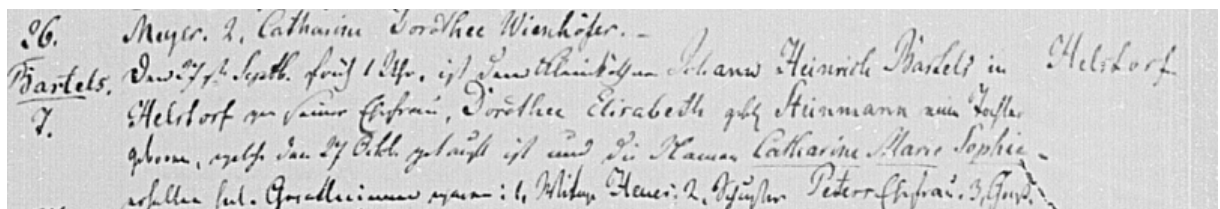 26. Meyer. 2, Catharine Dorothee Wienhöfer. –
Bartels. Den 27st. Septb. früh 1 Uhr, ist dem Kleinköthner Johann Heinrich Bartels in Helstorf
7. Helstorf von seiner Ehefrau, Dorothee Elisabeth geb. Steinmann eine Tochter
geboren, welche den 27 Octob. getauft ist und die Namen Catharine Marie Sophie
erhalten hat. Gevatterinnen waren: 1, Witwe 2, Schuster Peters Ehefrau. 3,